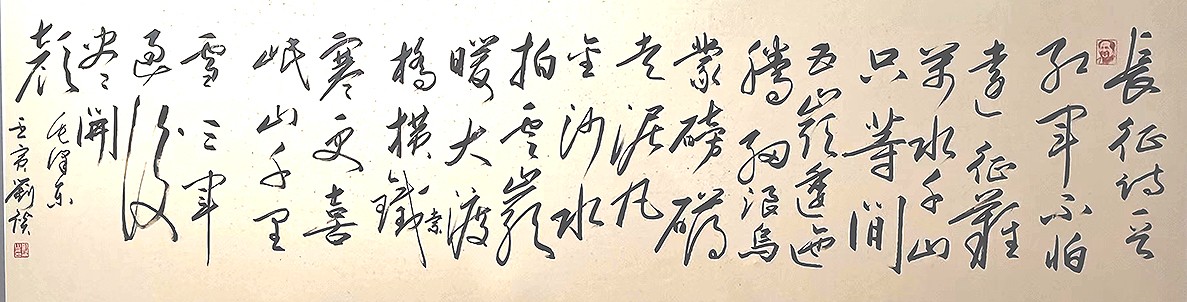 長征诗
红軍不怕
遠征難
萬水千山
只等閒
五嶺逶迤
騰细浪烏
蒙磅礴
走泥丸
金沙水
拍雲嶺
暖大渡
橋横鐵索
寒更喜
岷山千里
雪三軍
過後
盡開
顏
毛澤东
壬寅劉